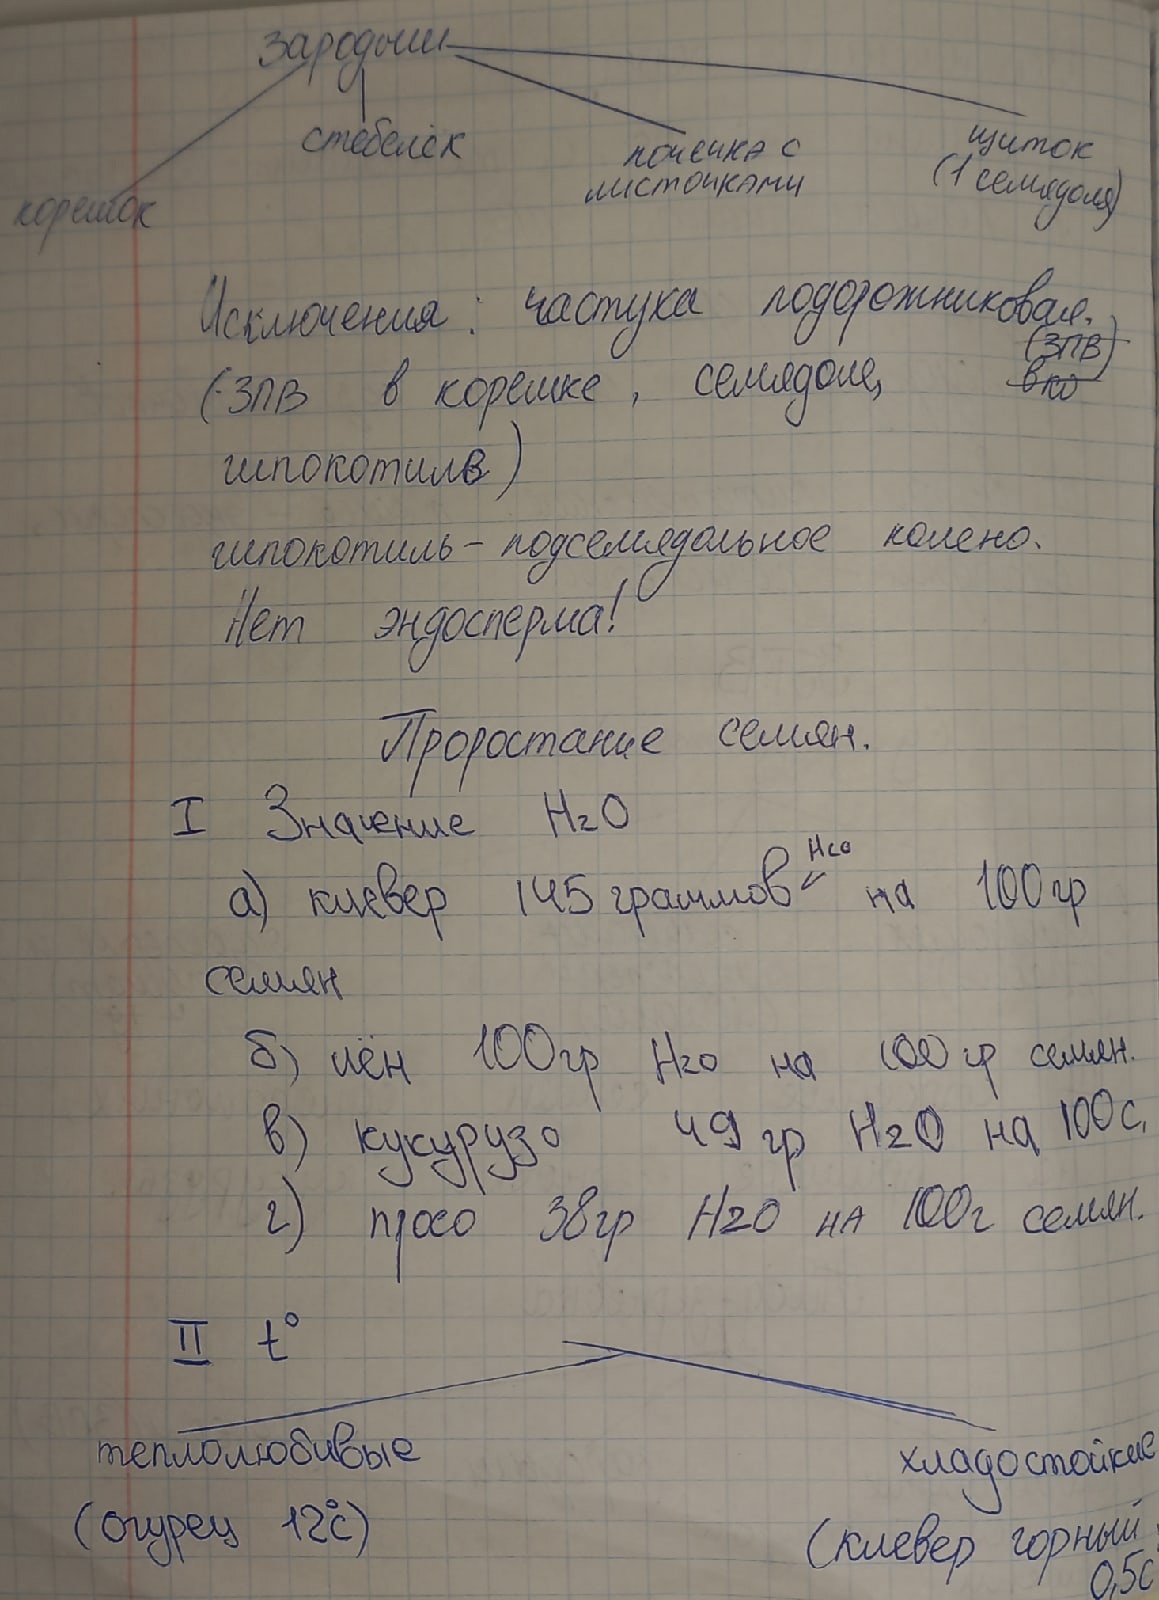 зародыш
стебелёк
почечка с
листочками
щиток
(1 семядоля)
корешок
Исключения: частуха подорожниковая.
(ЗПВ)
(ЗПВ в корешке, семядоле, в ко
гипокотилe)
гипокотиль – подсемядольное колено.
Нет эндосперма!
Прорастание семян.
I Значение H2O
H2O
а) клевер 145 граммов на 100 гр
семян
б) лён 100 гр H2O на 100 гр семян.
в) кукурузо 49 гр H2O на 100 с.
г) просо 38 гр H2O на 100 г семян.
II t°
теплолюбивые
хладостойкие
(огурец 12°С)
(клевер горный
0,5С